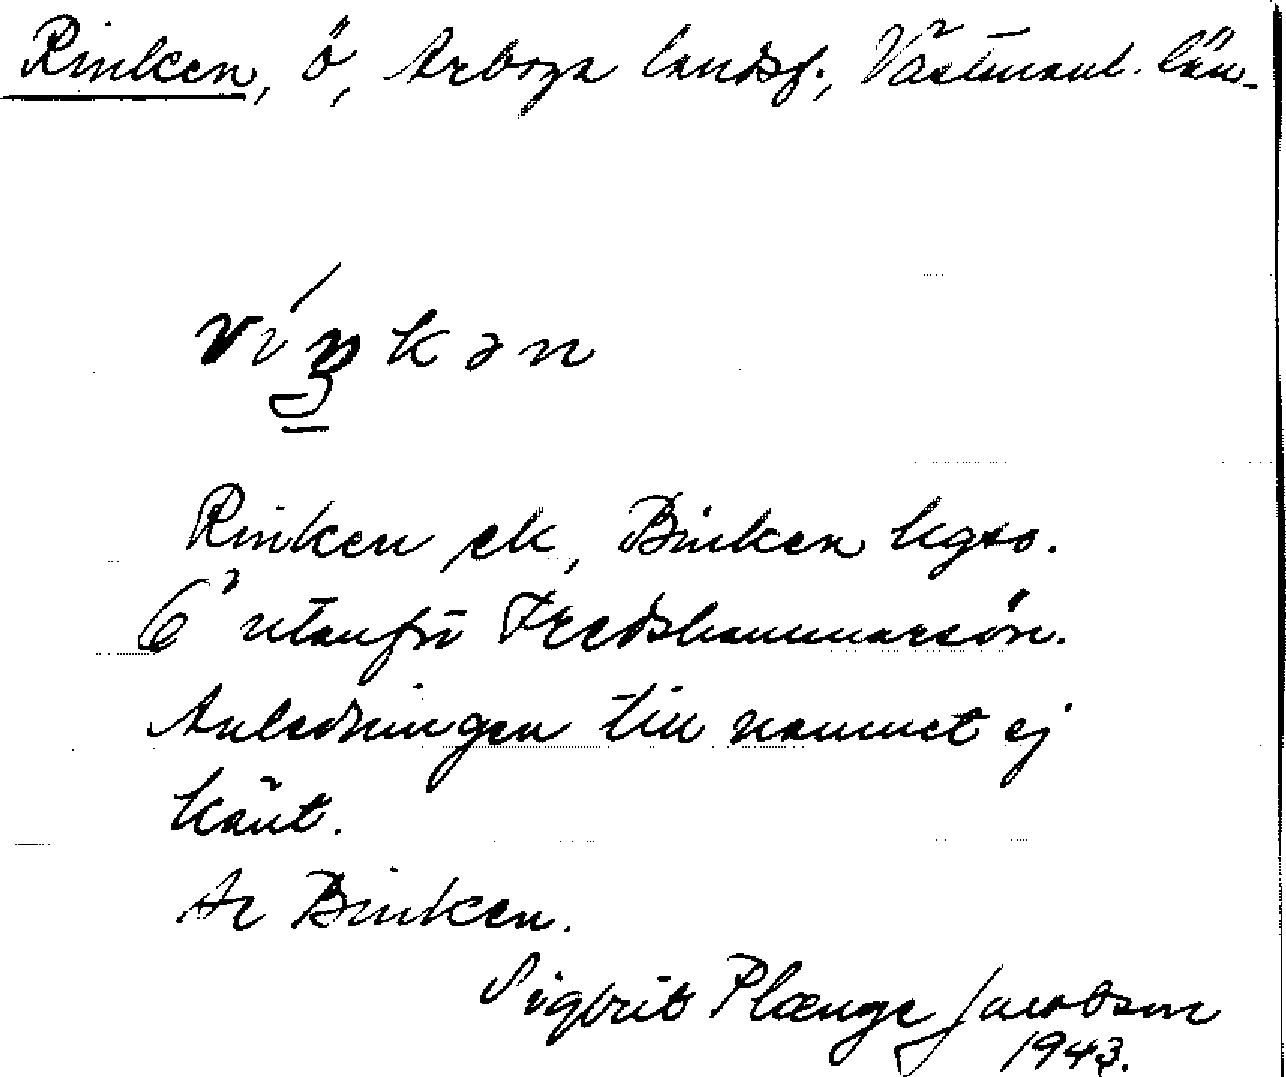 Rinken, ö, Arboga landsf., Västmanl. län.
ríŋkən
Rinken ek, Binken kgso.
Ö utanför Fredshammarsön.
Anledningen till namnet ej
känt.
Ar Binken.
Sigbrit Plænge Jacobson
1943.